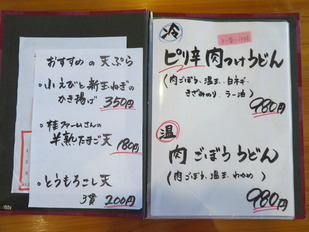 おすすめの天ぷら
・小えびと新玉ねぎの
かき揚げ 350円
・桂ファームさんの
半熟たまご天 180円
・とうもろこし天
3貫 200円
冷
ピリ辛肉つけうどん
(肉ごぼう、温玉、白ネギ、
きざみのり、ラー油)
980円
温
肉ごぼううどん
(肉ごぼう、温玉、わかめ)
980円